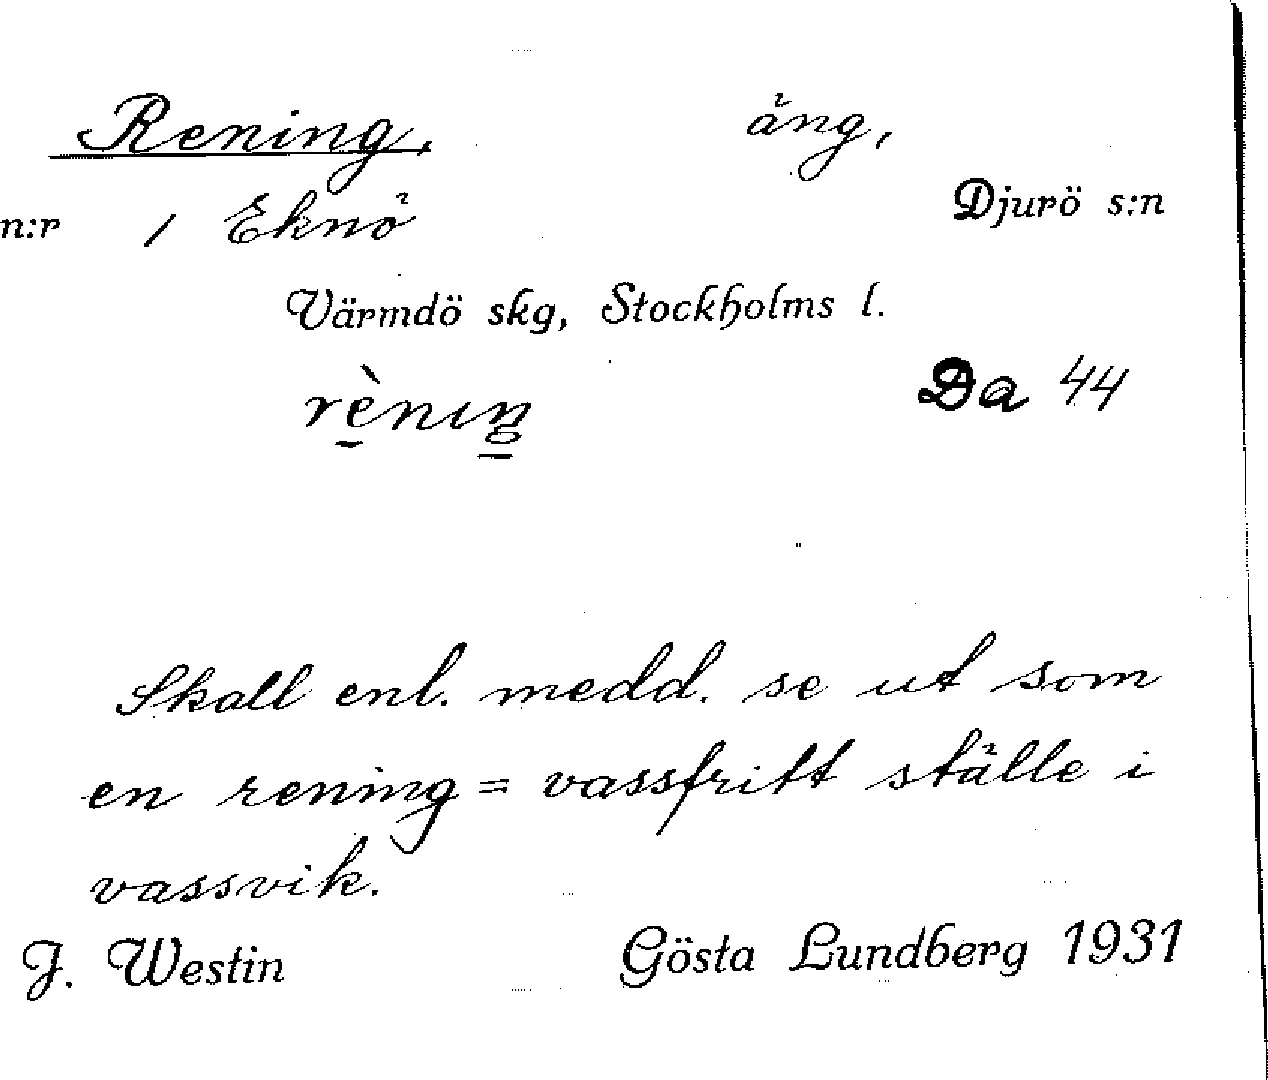 Rening, äng,
n:r 1 Eknö Djurö s:n
Värmdö skg, Stockholms l.
rèniŋ Da 44
Skall enl. medd. se ut som
en rening = vassfritt ställe i
vassvik.
J. Westin Gösta Lundberg 1931